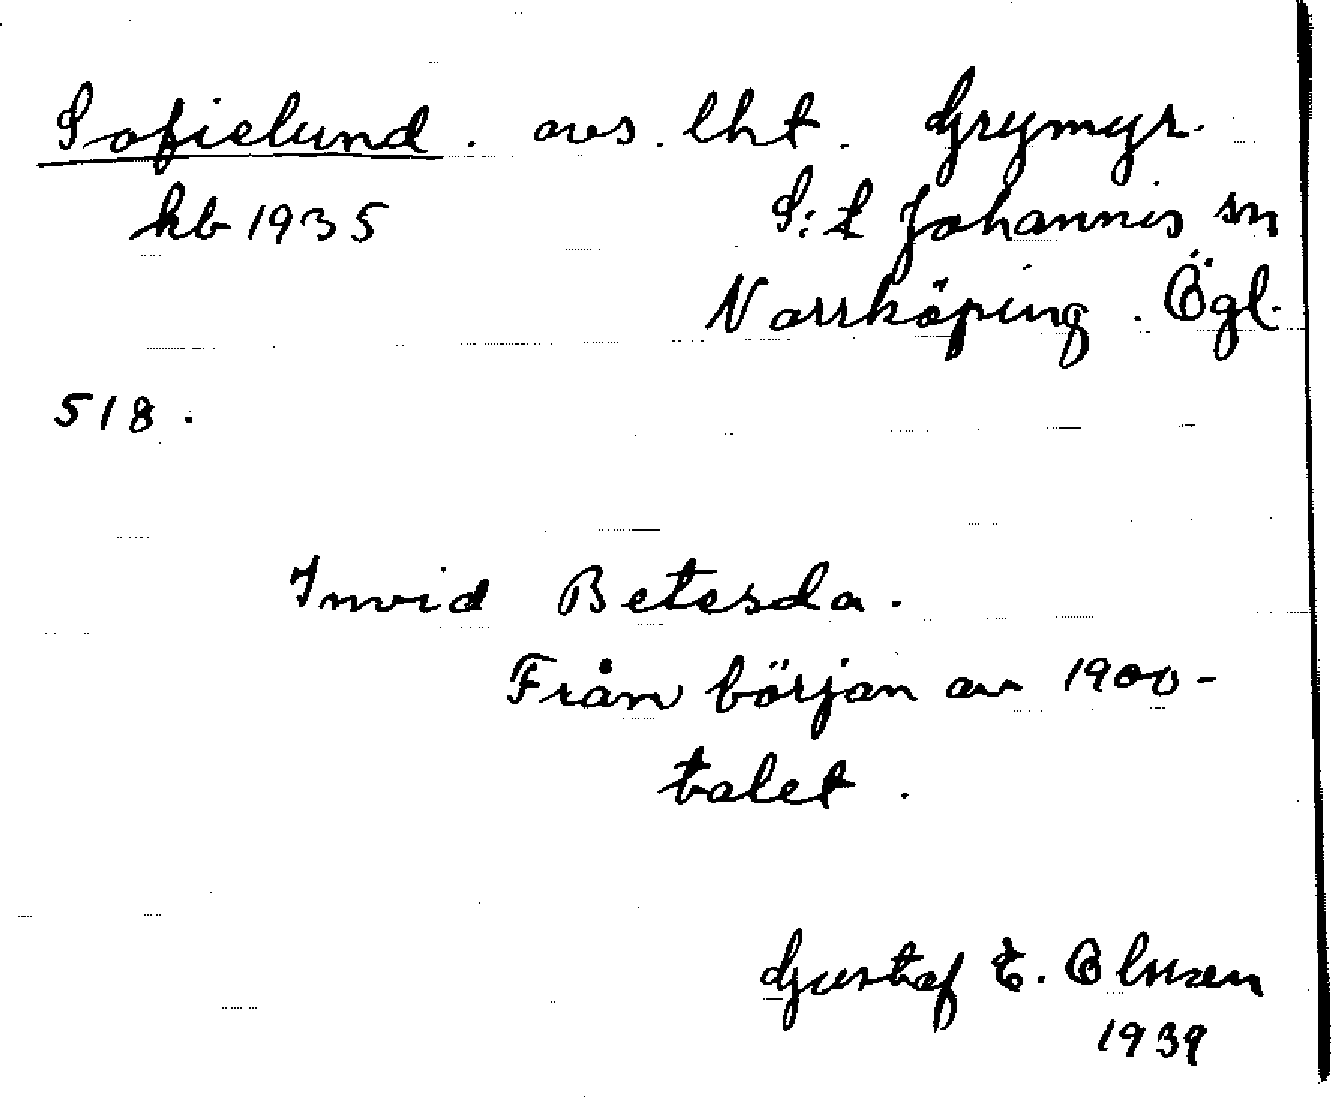 Sofielund. avs. lht. Grymyr.
kb 1935 S:t Johannis sn
Norrköping. Ögl.
518.
Invid Betesda.
Från början av 1900-
talet.
Gustaf E. Olsson
1939